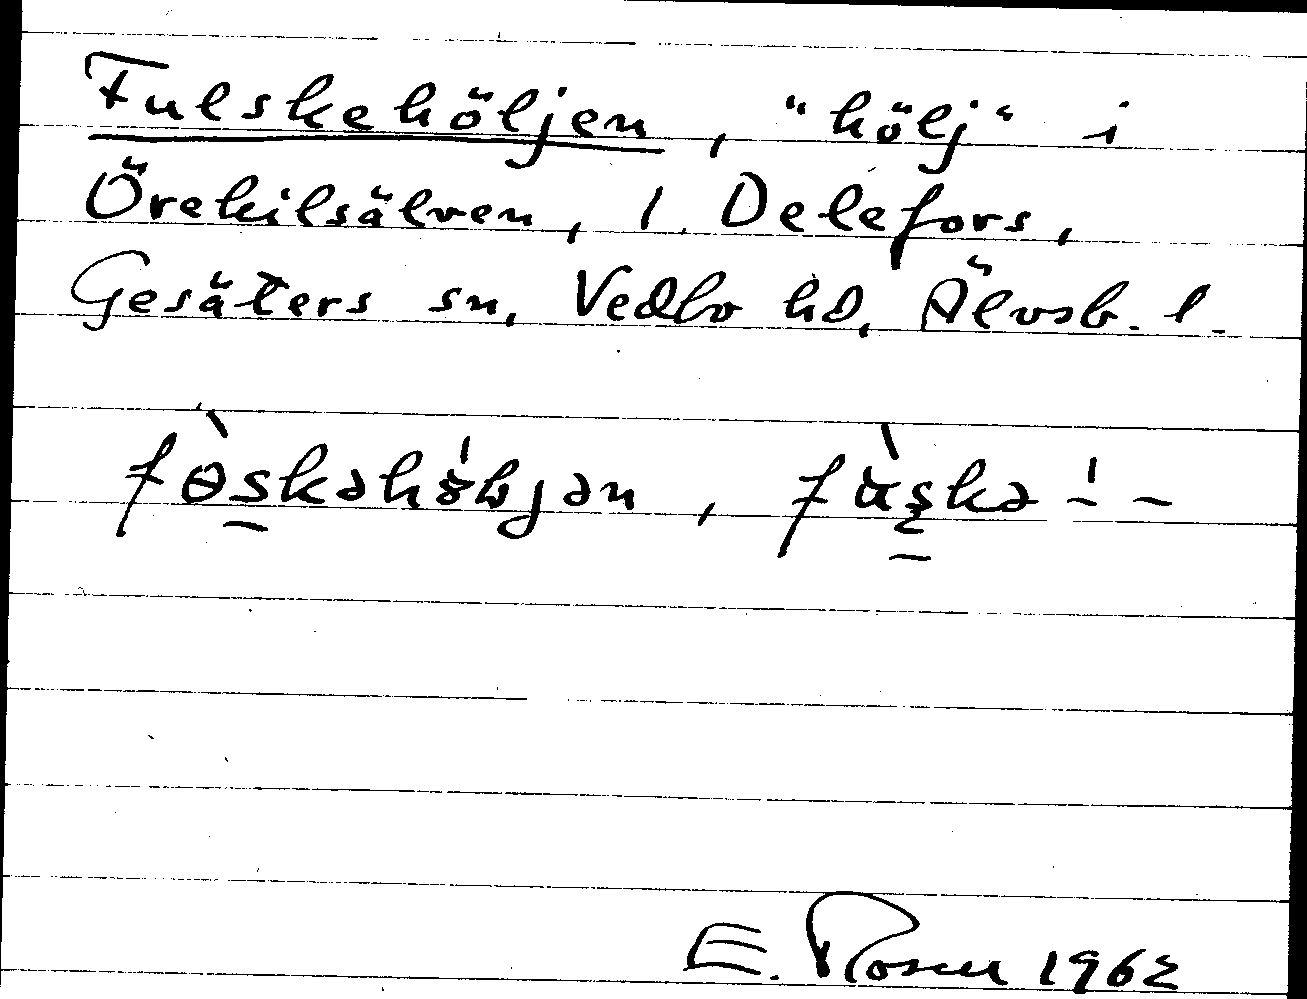 Fulskehöljen, "hölj" i
Örekilsälven, l. Delefors,
Gesäters sn, Vedbo hd, Älvsb. l.
fɵ̀s̠kəhɵ̍ljən, fùs̠kə -̍ -
E. Rosen 1962